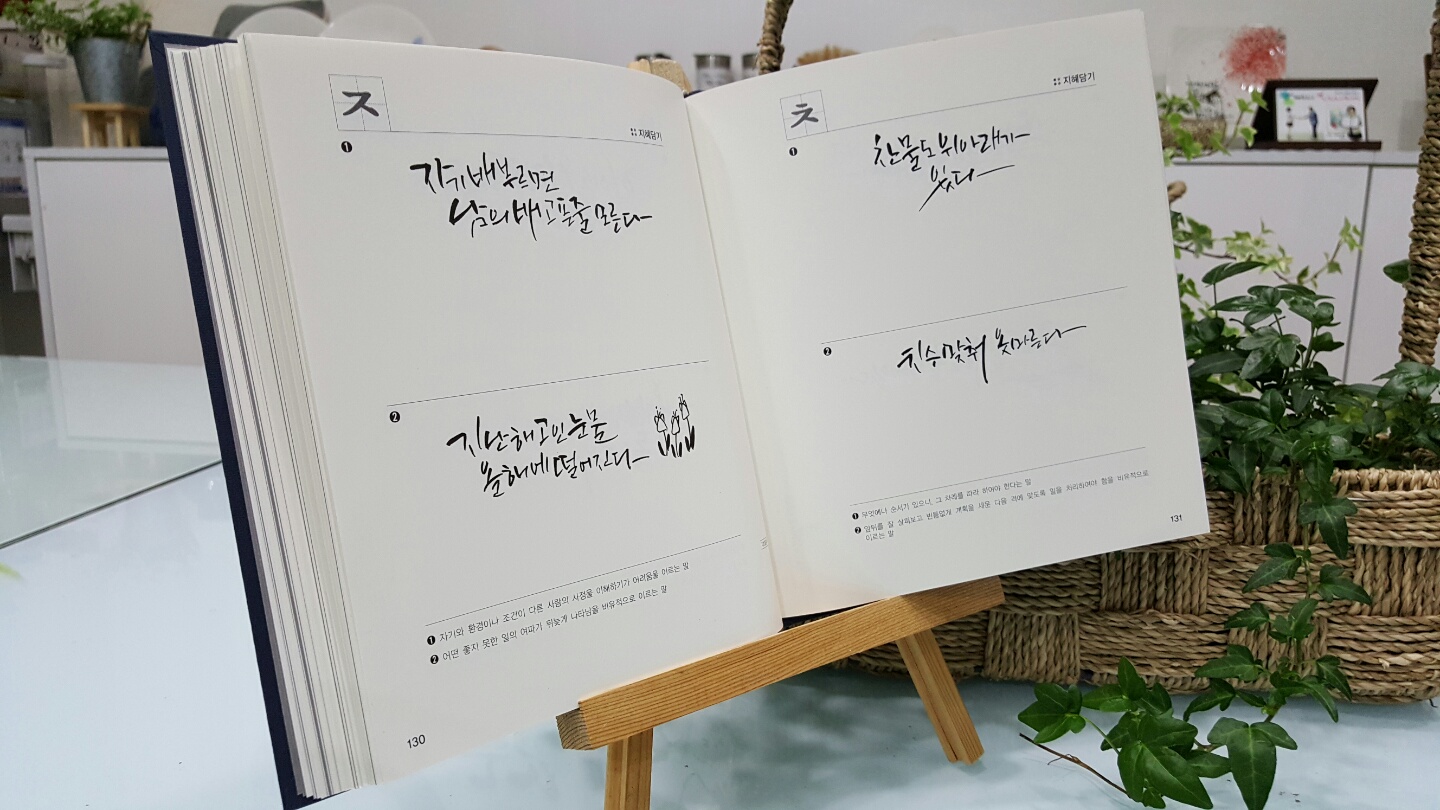 ㅈ
지혜담기
❶
자기 배 부르면
남의 배고픈 줄 모른다
❷
지난해 고인 눈물
올해에 떨어진다
❶ 자기와 환경이나 조건이 다른 사람의 사정을 이해하기가 어려움을 이르는 말
❷ 어떤 좋지 못한 일의 여파가 뒤늦게 나타남을 비유적으로 이르는 말
130
ㅊ
지혜담기
❶
찬물도 위아래가
있다
❷
치수 맞춰 옷 마른다
❶ 무엇에나 순서가 있으니, 그 차례를 따라 하여야 한다는 말
❷ 앞뒤를 잘 살펴보고 빈틈없게 계획을 세운 다음 격에 맞도록 일을 처리하여야 함을 비유적으로
이르는 말
131